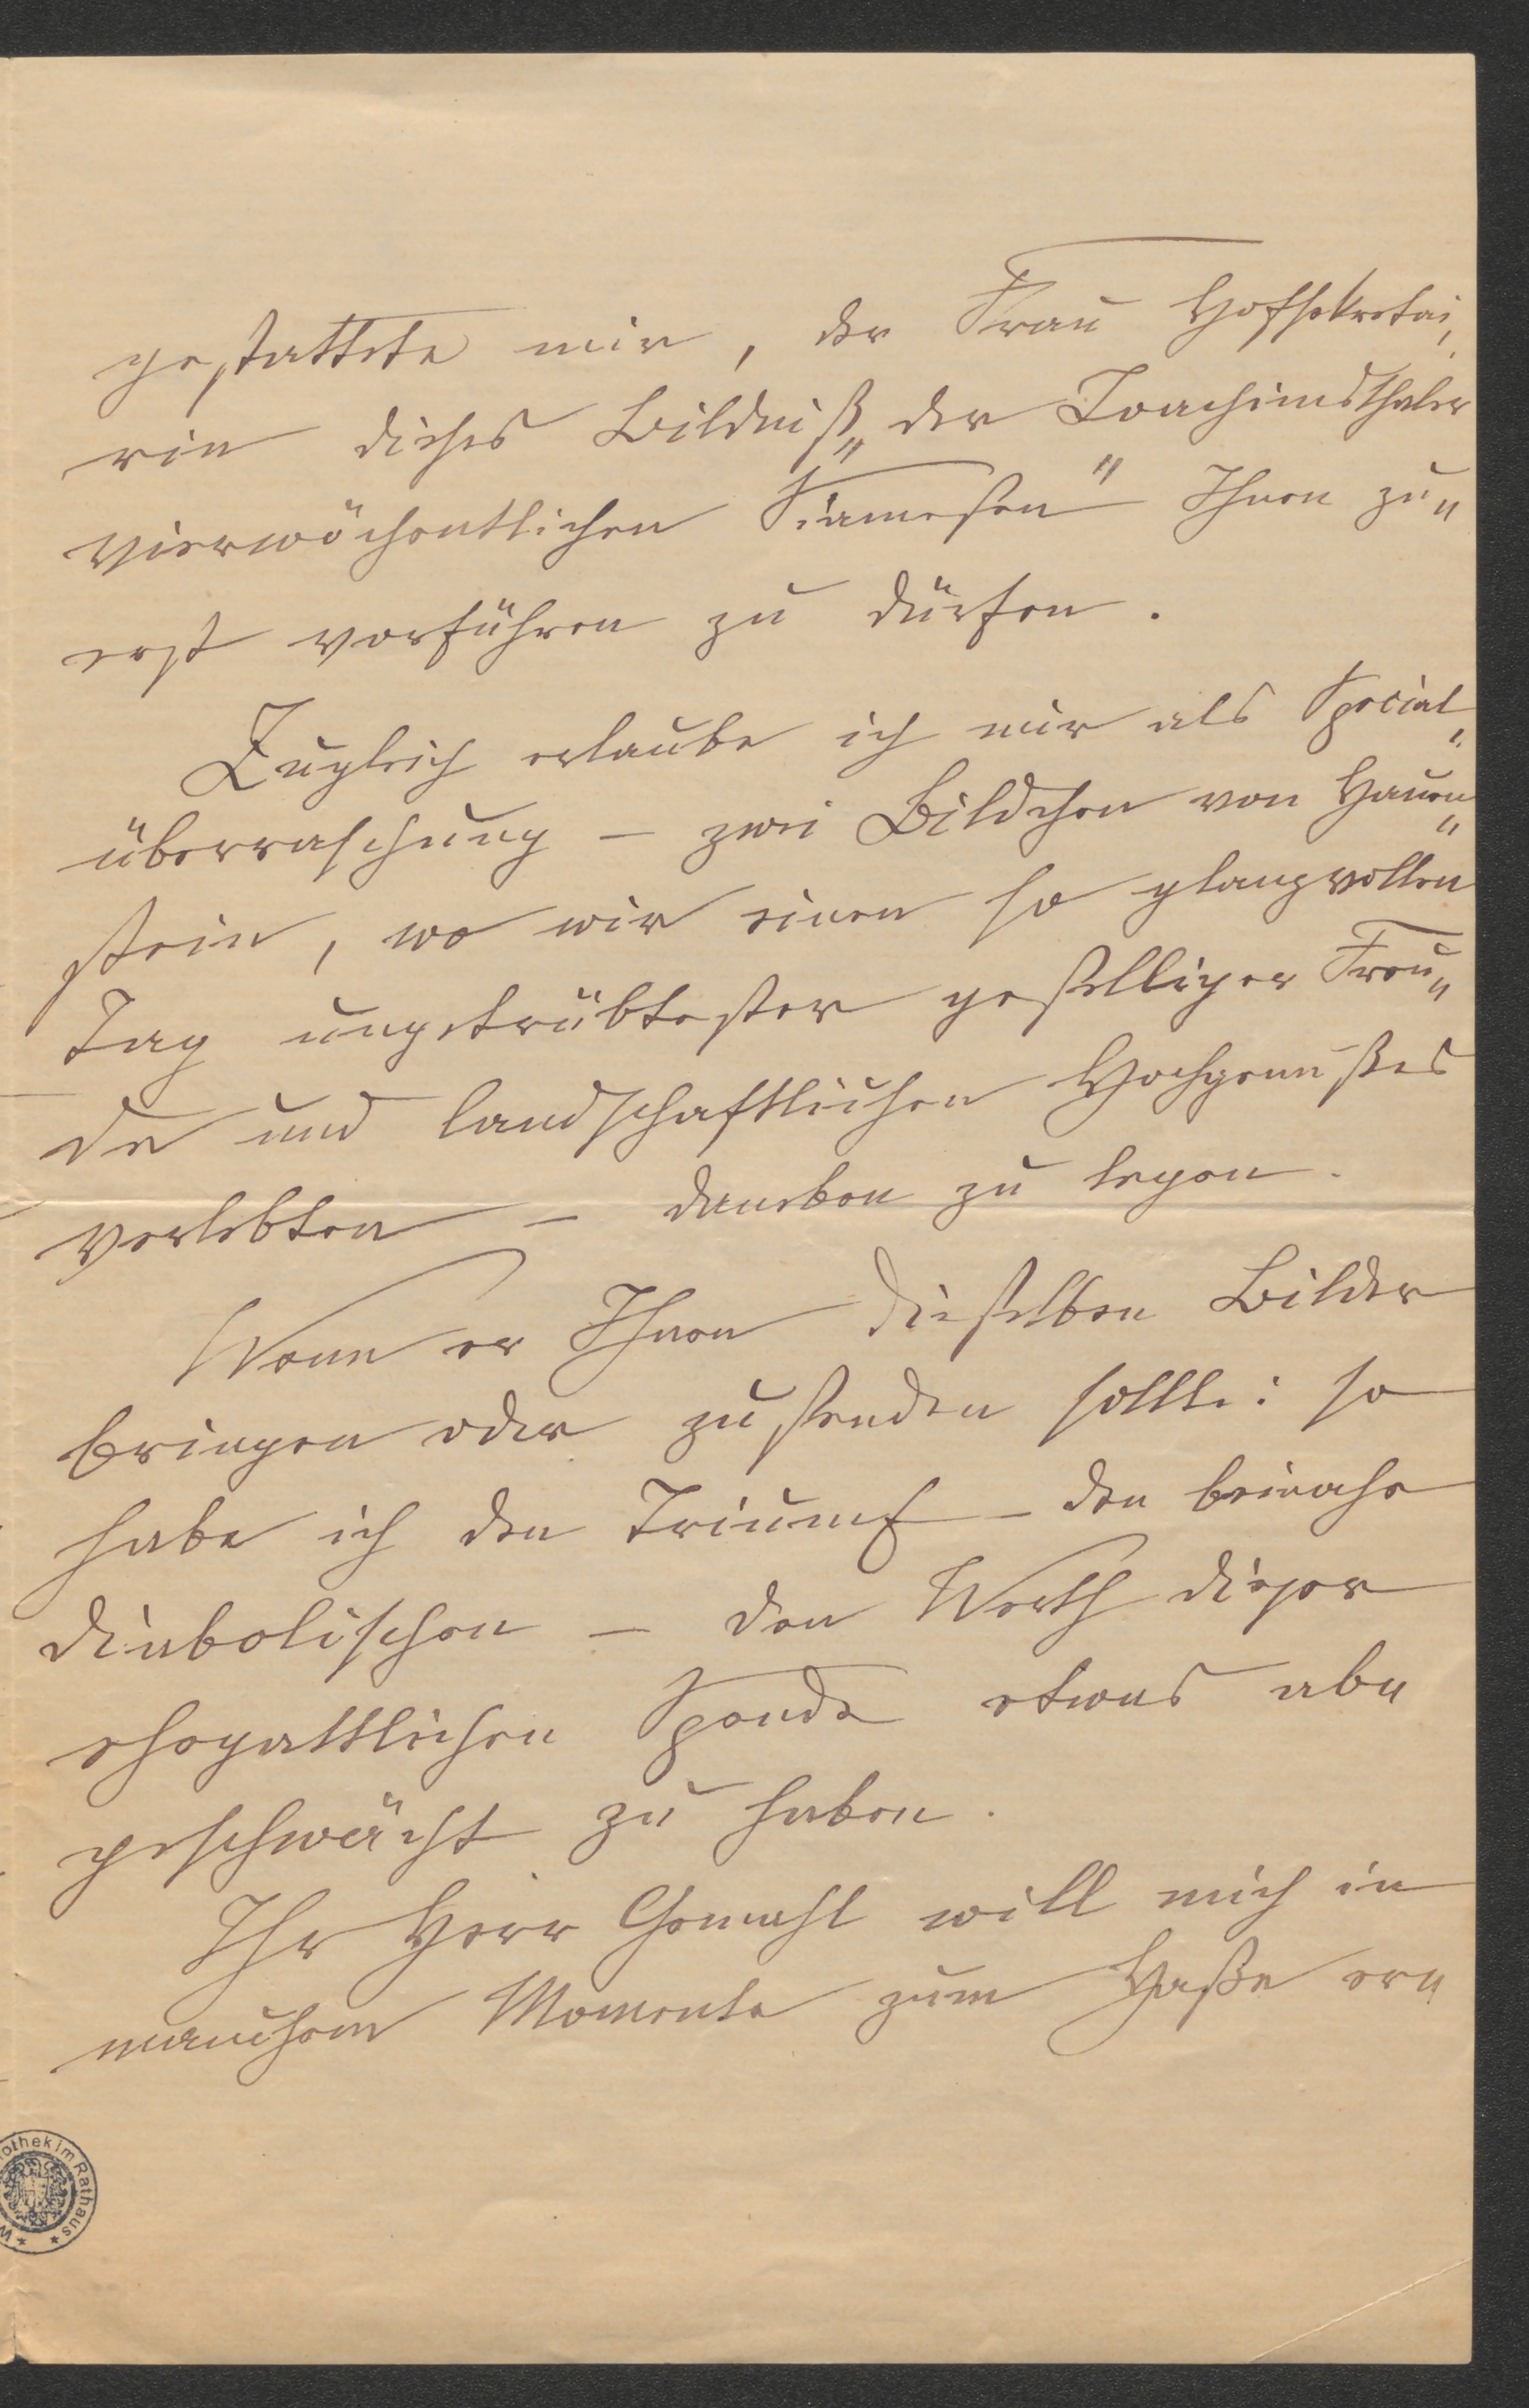 gestattete mir, der Frau Hofsekretai,
rin dieses Bildniß „der Joachimsthaler
vierwöchentlichen Siamesen" Ihnen zu„
erst vorführen zu dürfen.
Zugleich erlaube ich mir als Special„
überraschung – zwei Bildchen von Hauen„
stein, wo wir einen so glanzvollen
Tag ungetrübtester geselliger Freu„
de und landschaftlichen Hochgenußes
verlebten – daneben zu legen.
Wenn er Ihnen dieselben Bilder
bringen oder zusenden sollte: so
habe ich den Triumf – den beinahe
diabolischen – den Werth dieser
ehegattlichen Spende etwas ab„
geschwächt zu haben.
Ihr Herr Gemahl will mich in
manchem Momente zum Haße er„
othek im Rathaus